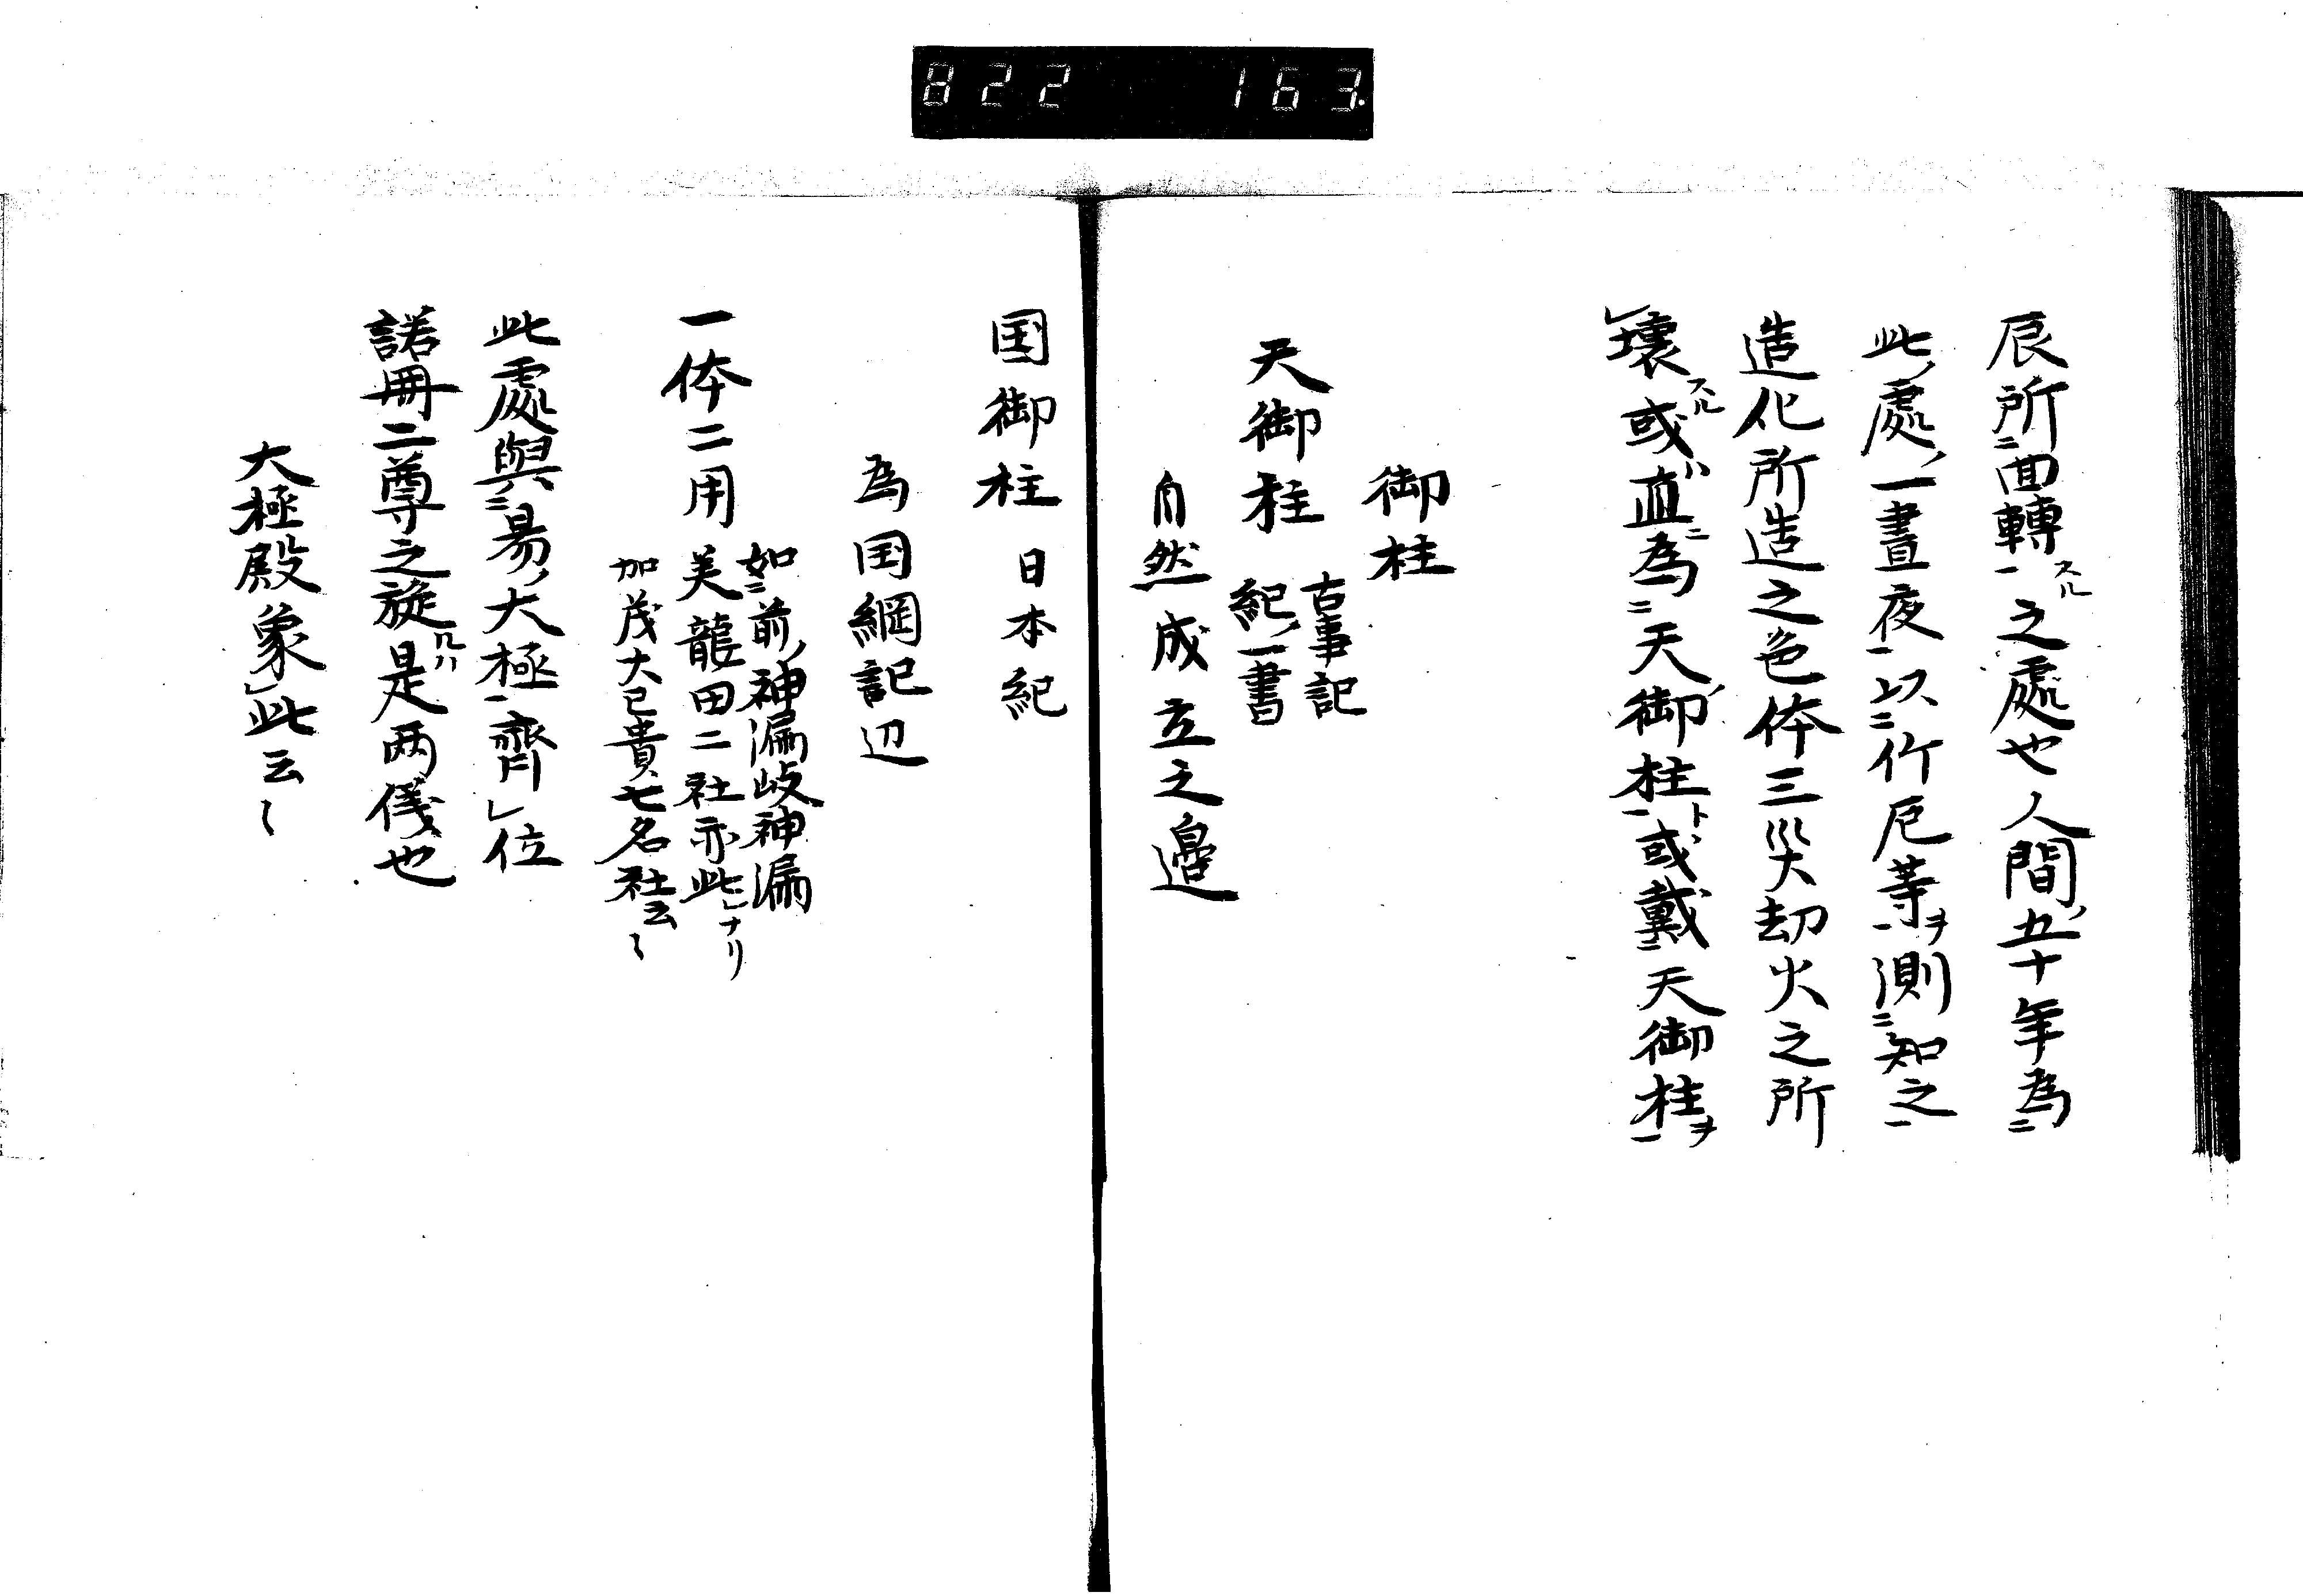 822 163.
辰所㆓回轉㆒スル之處也人間ノ五十年為㆓
此ノ處ノ一晝夜㆒以㆓竹厄等㆒ヲ測㆓知之㆒
造化所造之色体三災大劫火之所
㆑壞スル或ハ直ニ為㆓天ノ御柱㆒ト或戴㆓天御柱㆒ヲ
御柱
天御柱 古事記
紀ノ一書
自然成立之邊
国御柱 日本紀
為国網記辺
一体二用 如㆓前ノ神漏岐神漏
美龍田二社亦此㆑ナリ
加茂大已貴七名社云〻
此處與㆓易ノ大極㆒齊㆑位
諾冊二尊之旋ルハ是両儀也
大極殿象㆑此云〻